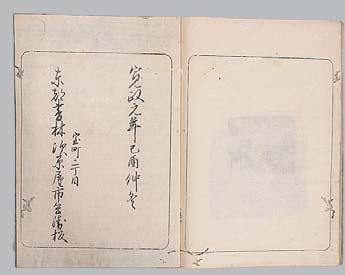 寛政元年己酉仲冬
室町二丁目
東都書林須原屋市兵衛板